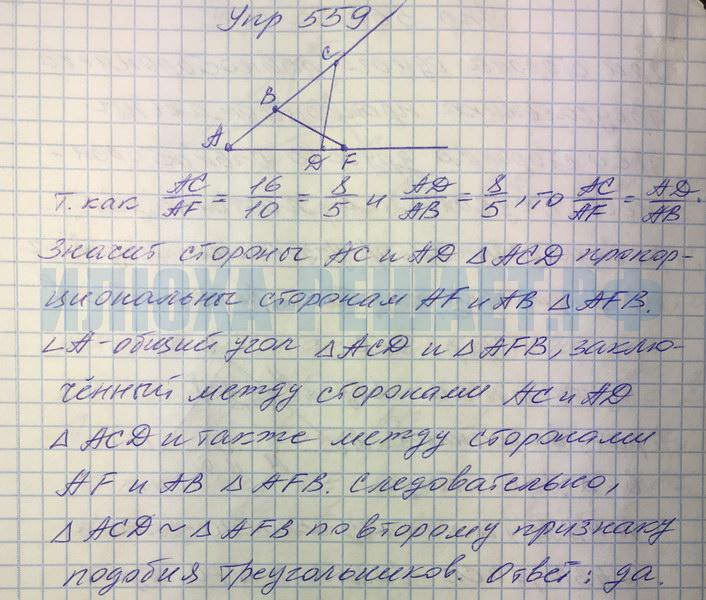 Упр 559
C
B
A
D F
Т. как AC/AF = 16/10 = 8/5 и AD/AB = 8/5, то AC/AF = AD/AB.
Значит стороны AC и AD △ ACD пропор-
циональны сторонам AF и AB △ AFB.
∠A - общий угол △ACD и △AFB, заклю-
чённый между сторонами AC и AD
△ ACD и также между сторонами
AF и AB △ AFB. Следовательно,
△ ACD ~ △ AFB по второму признаку
подобия треугольников. Ответ: да.
ИЛЮХА-РЕШАЕТ.РФ